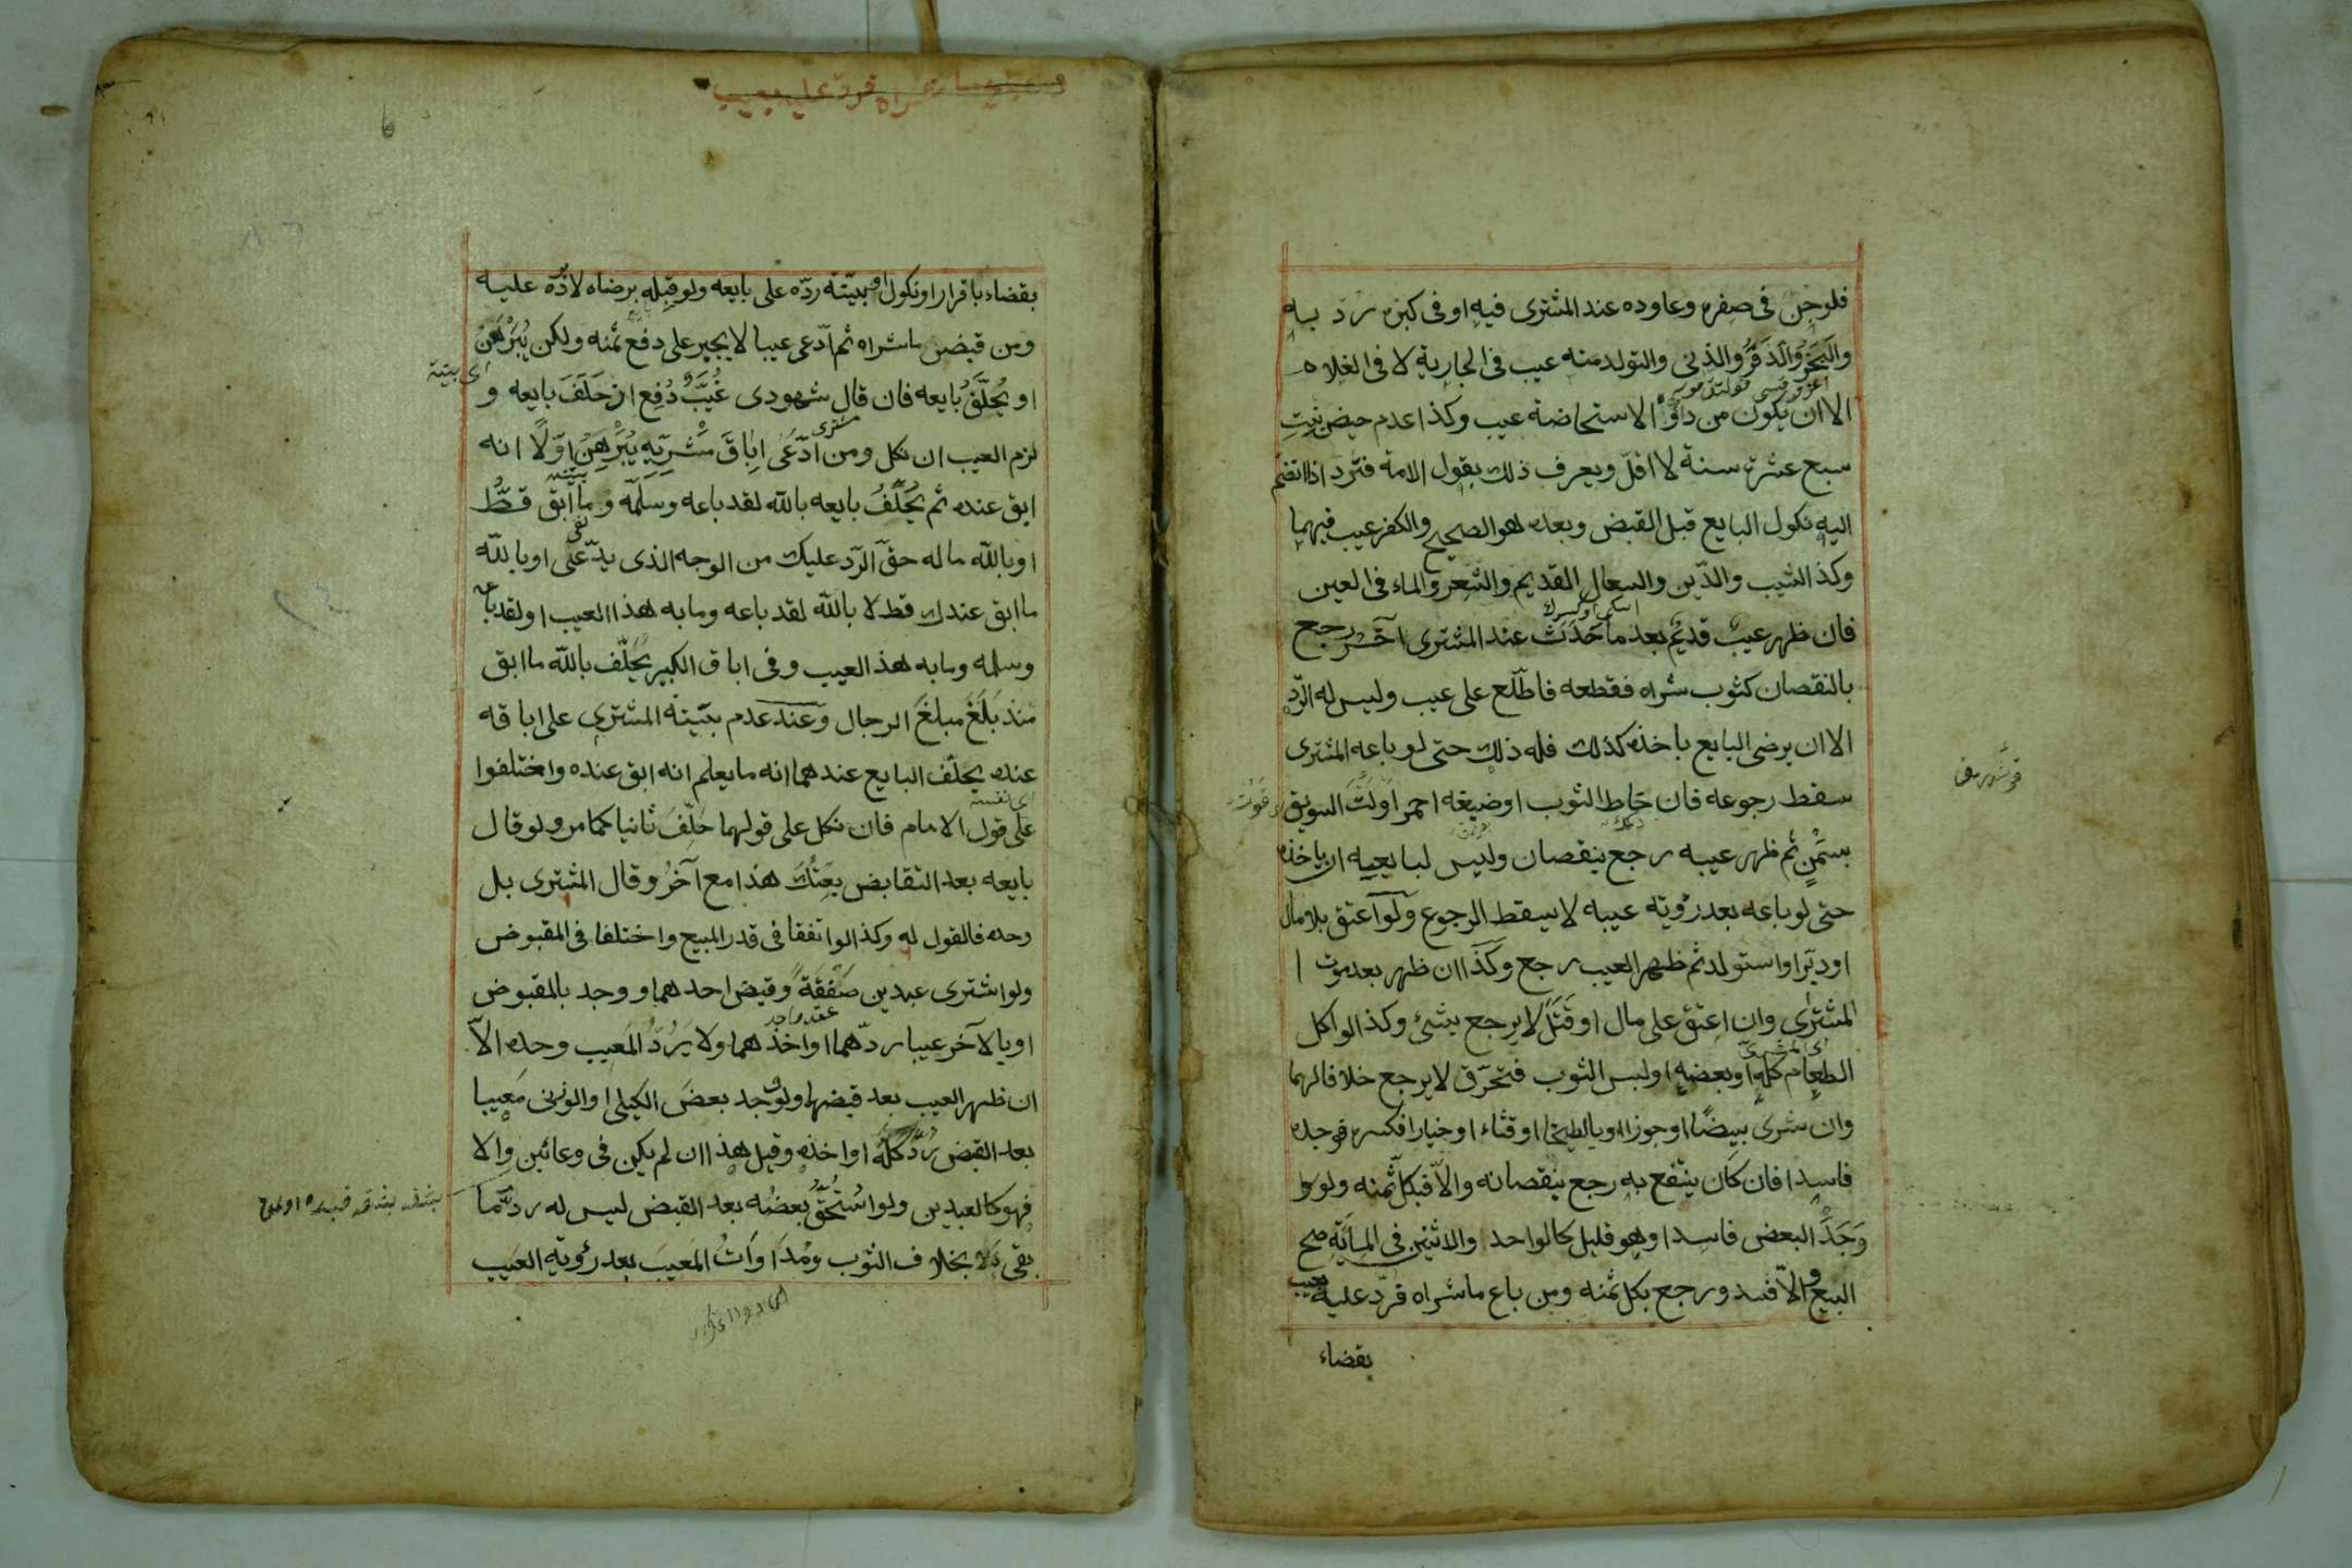 فلو جن في صغره وعاوده عند المشتري فيه او في كبره رد به
والبخر والذفر والزنى والتولد منه عيب في الجارية لا في الغلام
الا ان يكون من داء والاستحاضة عيب وكذا عدم حيض بنت
سبع عشرة سنة لا اقل ويعرف ذلك بقول الامة فترد اذا انضم
اليه نكول البايع قبل القبض وبعده هو الصحيح والكفر عيب فيهما
وكذا الشيب والدّين والسعال القديم والشعر والماء في العين
فان ظهر عيب قديم بعد ما حَدَثَ عند المشتري آخر رجع
بالنقصان كثوب شراه فقطعه فاطّلع على عيب وليس له الرّد
الا ان يرضى البايع باخذه كذلك فله ذلك حتى لو باعه المشترى
سقط رجوعه فان خاط الثوب او ضبغه احمر او لَتَّ السويق
بسَمْنٍ ثم ظهر عيبه رجع بنقصان وليس لبايعيه ان ياخذه
حتى لو باعه بعد رؤية عيبه لا يسقط الرجوع ولو اعتق بلا مال
او دبّر او استولد ثم ظهر العيب رجع وكذا ان ظهر بعد موت
المشترى وان اعتق على مال او قَتَلَ لا يرجع بشئ وكذا لو اكل
اى المشترى
الطعام كله او بعضه او لبس الثوب فتخرّق لا يرجع خلافا لهما
وان شرى بيضًا او جوزا او بالطيخا او قثاء او خيارا فكسره فوجده
فاسدا فان كان ينتفع به رجع بنقصانه والاّ فبكل ثمنه ولو
وَجَدَ البعض فاسدا وهو قليل كالواحد والاثنين في المائة صح
البيع والاّ فسد ورجع بكل ثمنه ومن باع ما شراه فردّ عليه بعيب
بقضاء
شراه فرد عليه بعيب
بقضاء باقرار او نكول او ببيّنة ردّه على بايعه ولو قبله برضاه لا يردّه عليه
ومن قبض ما شراه ثم ادّعى عيبا لا يجبر على دفع ثمنه ولكن يُبَرْهَنْ
اى بينة
او يُحلّفُ بايعه فان قال شهودى غُيَّبٌ دُفِع ان حَلَفَ بايعه و
لزم العيب ان نكل ومن ادّعَى اِباقَ مَشْرِيّهِ يُبَرْهِنُ اوّلًا انه
ابق عنده ثم يُحَلَّفُ بايعه بالله لقد باعه وسلّمه وما ابق قطُّ
او بالله ما له حقّ الرّد عليك من الوجه الذى يدّعى او بالله
ما ابق عندك قط لا بالله لقد باعه وما به هذا العيب او لقد باعه
وسلمه وما به هذ العيب وفى اباق الكبير يحلّف بالله ما ابق
منذ بَلَغَ مبلغ الرجال وعند عدم بيّنة المشترى على اباقه
عنده يحلّف البايع عندهما انه ما يعلم انه ابق عنده واختلفوا
على قول الامام فان نكل على قولهما حُلّفَ ثانيا كما مر ولو قال
بايعه بعد التقابض بعتُك هذا مع آخرُ وقال المشترى بل
وحده فالقول له وكذا لو اتفقا فى قدر المبيع واختلفا فى المقبوض
ولو اشترى عبدين صَفْقَةً وقبض احدهما ووجد بالمقبوض
عقد واحد
او بالآخر عيبا ردّهما او اخذهما ولا يَرُدّ المَعيب وحده الاّ
ان ظهر العيب بعد قبضهما ولو وجد بعضَ الكيلى او الوزنى مَعيبا
بعد القبض ردّ كله او اخذه وقيل هذا ان لم يكن فى وعائين والا
فهو كالعبدين ولو استُحِقَّ بعضُه بعد القبض ليس له ردّ ما
بقى بخلاف الثوب ومُداواتُ المَعيبَ بعد رؤية العيب